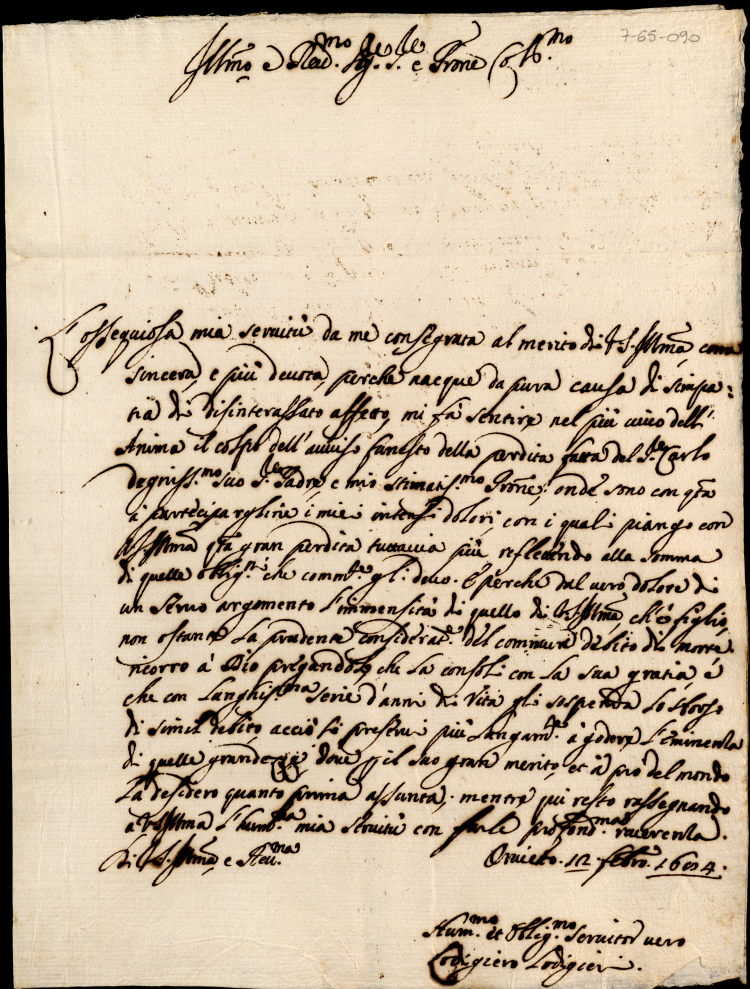 7-65-090
Illmo e Reu.mo Sig.re S.e e Prone Co.mo
L'ossequiosa mia seruitù da me consegrata al merito di V.S. Illma, come
sincera, e più deuota, perche nacque da pura causa di simpa:
tia di disinterassato affetto, mi fà sentire nel più uiuo dell'
Anima il colpo dell'auuiso funesto della perdita fatta del S.r Carlo
degniss.mo suo S.r Padre, e mio stimatiss.mo Prone; onde sono con qta
à participargline i miei intensi dolori, con i quali piango con
V.S. Illma qta gran perdita tuttauia più reflettendo alla somma
di quelle oblig.ni che comm.te gli deuo. E perche dal uero dolore di
un seruo argomento l'immensità di quello di V.S. Illma, ch'è figlio,
non ostante la prudente considerat.e del commune debito di morte.
ricorro à Dio pregandolo, che la consoli con la sua gratia, e
che con langhis.ma serie d'anni di Vita gli sospenda lo sborso
di simil debito acciò si preserui più langam.te à godere l'eminenza
di quelle grandezze doue il suo gran merito, et à prò del mondo
la desidero quanto prima assunta; mentre qui resto rassegnando
à V.S. Illma l'hum.ma mia seruitù con farle profond.ma reuerenza.
Di V.S. Illma, e Reu.ma
Oruieto. 12 febro. 1684.
Hum.mo et Oblig.mo Seruitor uero
Lodigiero Lodigieri.